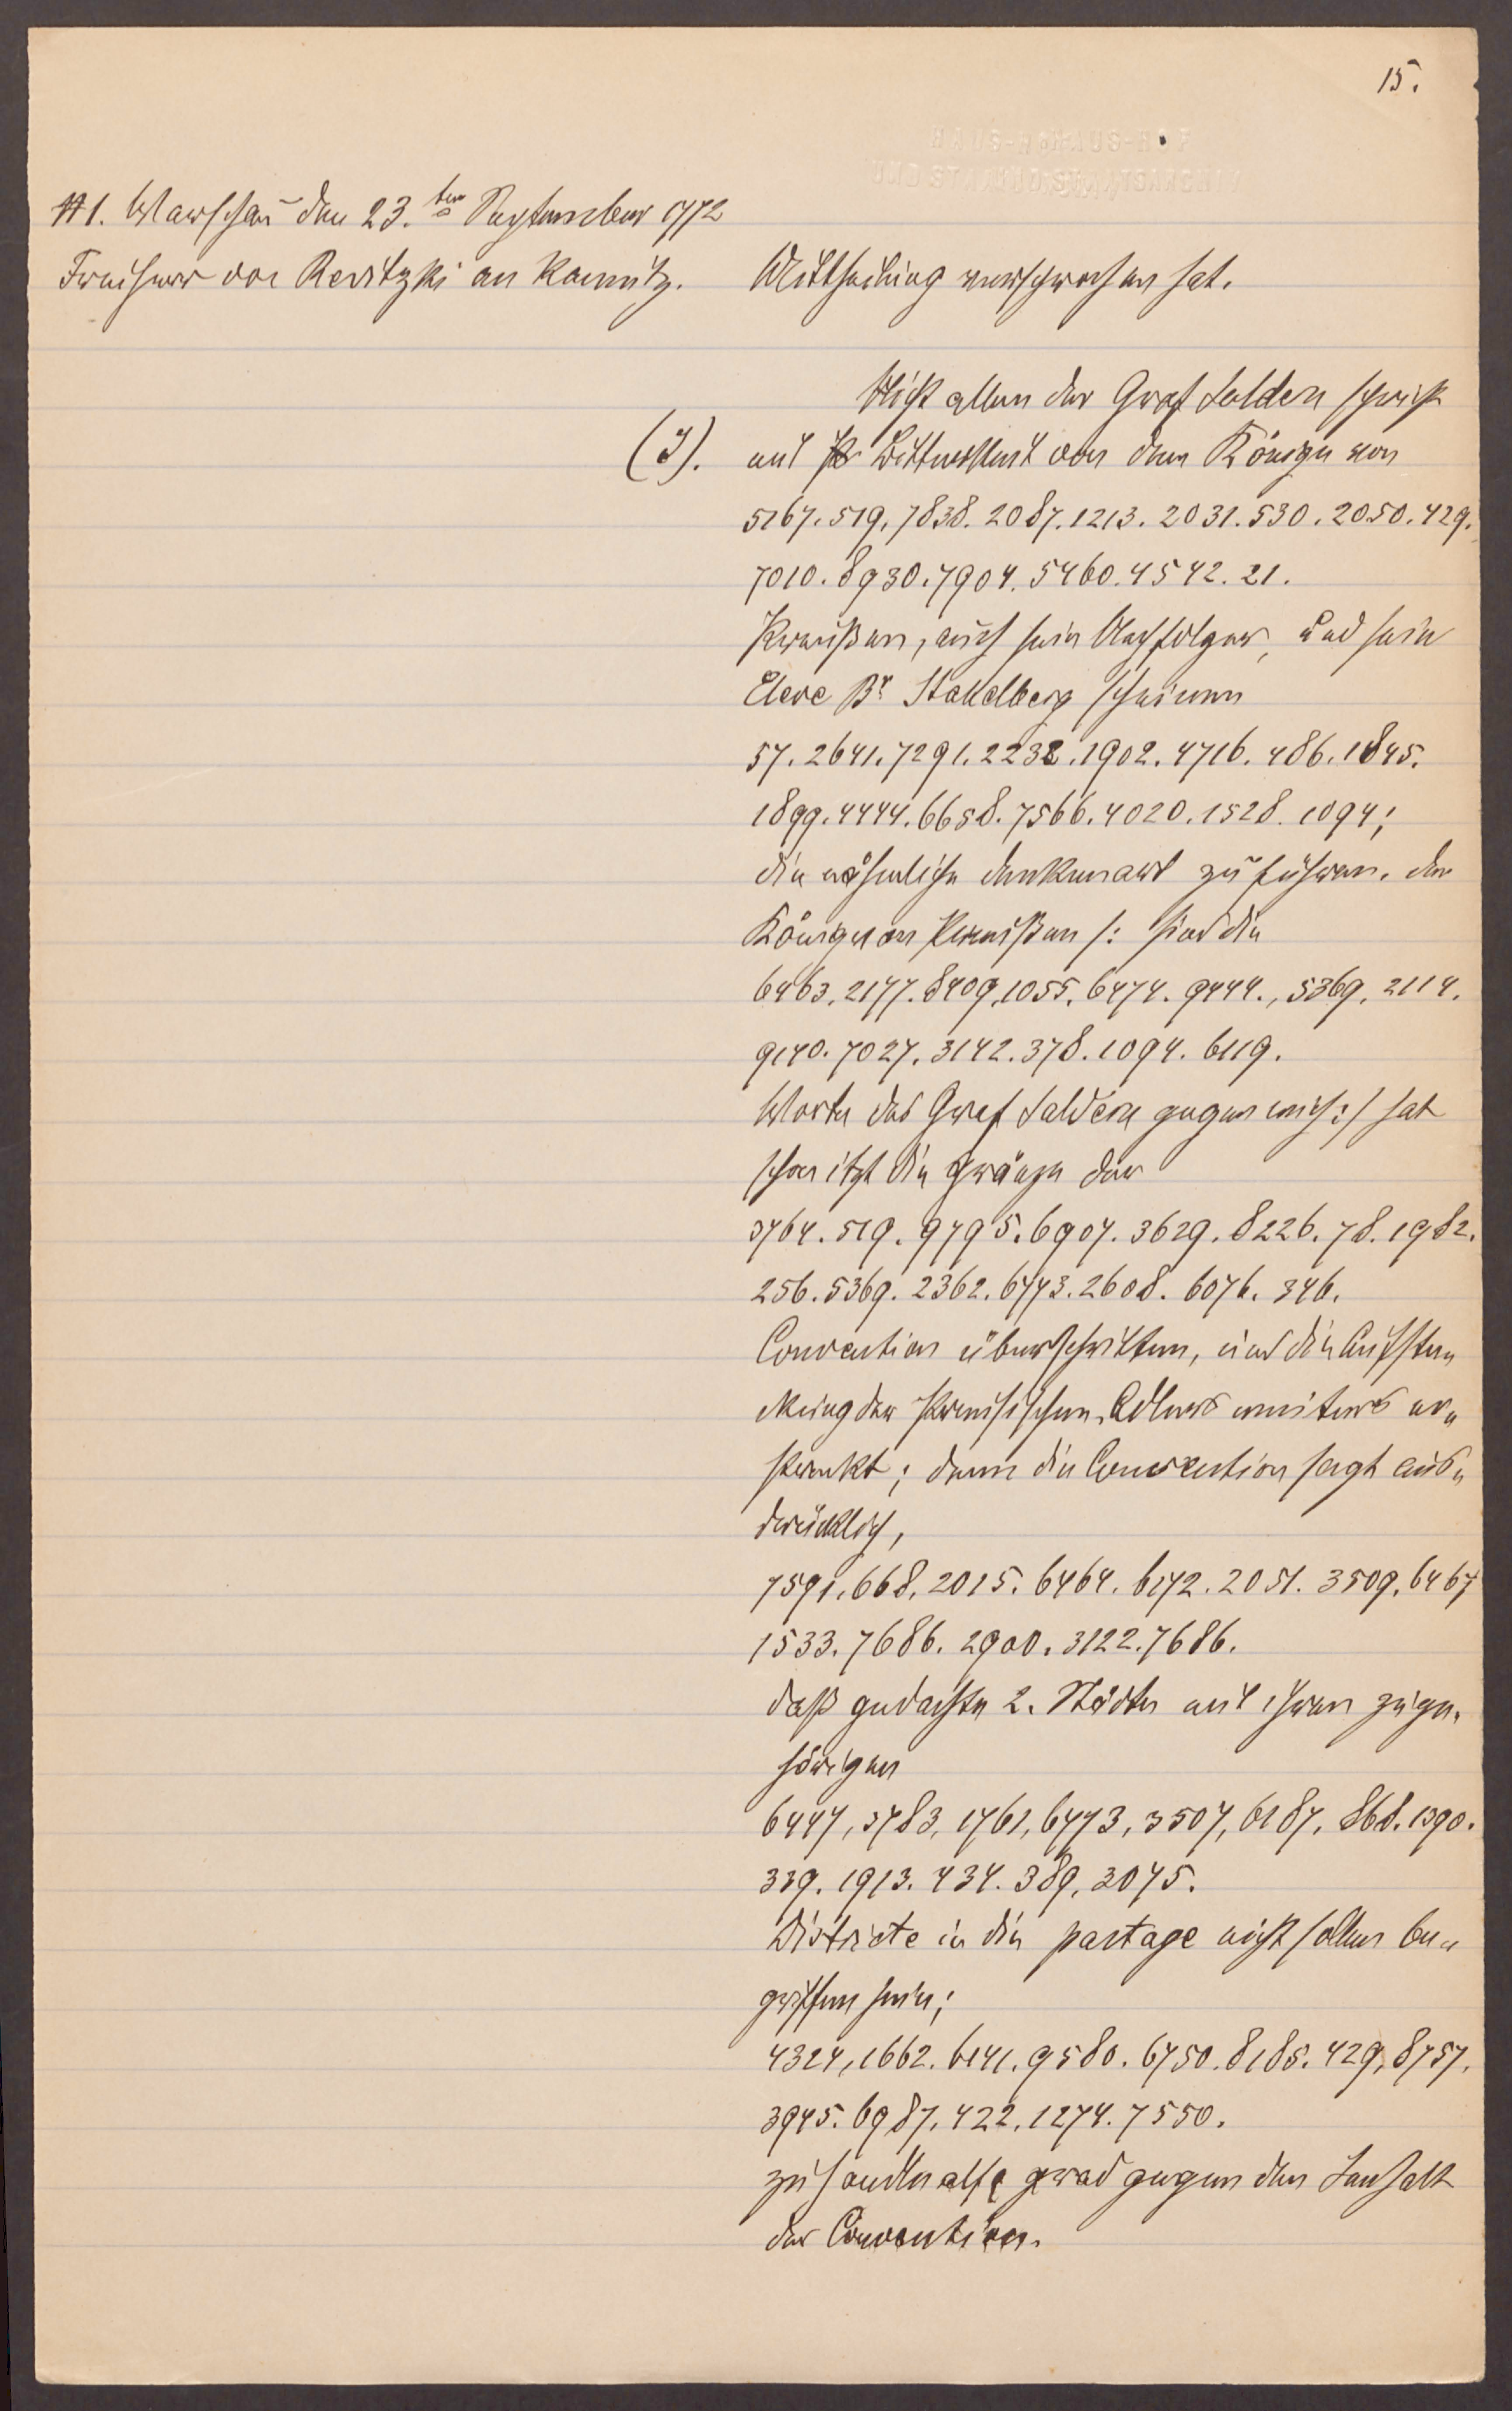 15.
# 1. Warschau den 23.ten September 1772
Freiherr von Revitzki an Kaunitz.
Mittheilung versprochen hat.
Nicht allein der Graf Saldern spricht
(J). mit Bitterkeit von dem Könige von
5167. 519. 7838. 2087. 1213. 2031. 530. 2050. 429.
7010. 8930. 7904. 5460. 4542. 21.
Preußen, auch sein Nachfolger, und sein
Eleve Br Stakelberg scheinen
57. 2641. 7291. 2232. 1902. 4716. 486. 1845.
1899. 4444. 6658. 7566. 4020. 1528. 1094;
die nähmliche denkensart zu führen. der
König von Preußen /: sind die
6463. 2177. 8409. 1055. 6474. 9444., 5369. 2114.
9140. 7027. 3142. 378. 1094. 6119.
Worte des Graf Saldern gegen mich :/ hat
schon itzt die Gränze der
3764. 519. 9795. 6907. 3629. 8226. 78. 1982.
256. 5369. 2362. 6773. 2608. 6076. 346.
Convention überschritten, und die Aufste„
ckung der Preusischen Adlers weiters er„
streckt; denn die Convention sagt aus„
drücklich,
7591. 668. 2015. 6464. 6172. 2051. 3509. 6467
1533. 7686. 2900. 3122. 7686.
daß gedachte 2. Städte mit ihren zuge„
hörigen
6447, 3783, 1761, 6773, 3507, 6187. 868. 1390.
339. 1913. 434. 389. 3075.
Districte in die partage nicht sollen be„
griffen sein;
4324, 1662. 6141. 9580. 6750. 8185. 429. 8757.
3945. 6987. 422. 1274. 7550.
zu handle also grad gegen den Innhalt
der Convention.